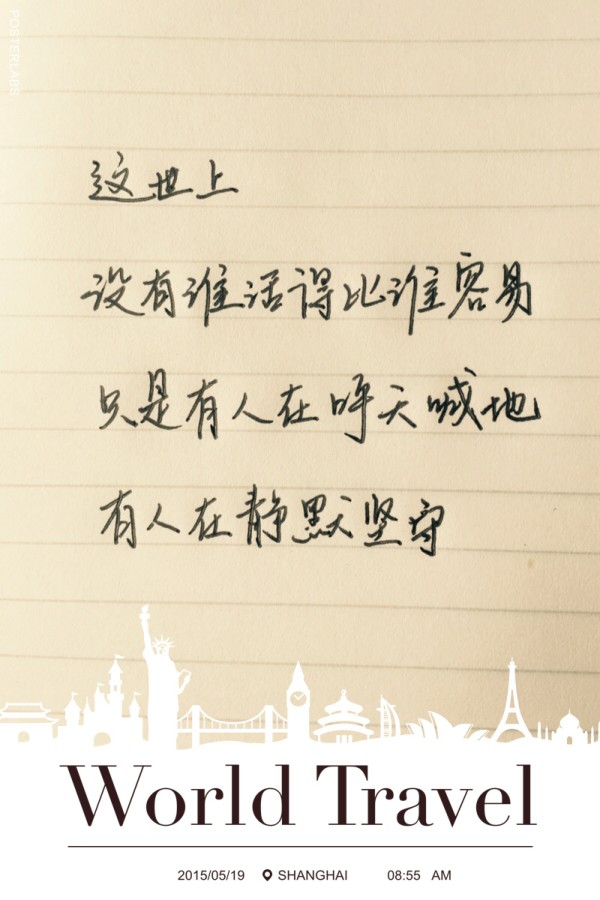 POSTERLABS
这世上
没有谁活得比谁容易
只是有人在呼天喊地
有人在静默坚守
World Travel
2015/05/19 SHANGHAI 08:55 AM